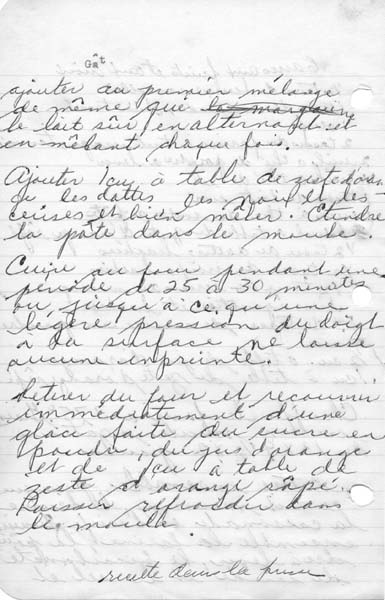 Gât
ajouter au premier mélange
de même que la margarine
le lait sûr, en alternant et
en mêlant chaque fois.
Ajouter 1 cu à table de zeste d'oran
ge les dattes les noix et les
cerises et bien mêler. Etendre
la pâte dans le moule.
Cuire au four pendant une
période de 25 à 30 minutes
ou jusqu'à ce qu'une
légère pression du doigt
à la surface ne laisse
aucune enpreinte.
Retirer du four et recouvrir
immediatement d'une
glace faite du sucre en
poudre, du jus d'orange
et de 1 cu à table de
zeste d'orange râpé.
Laisser refroidir dans
le moule.
recette dans la